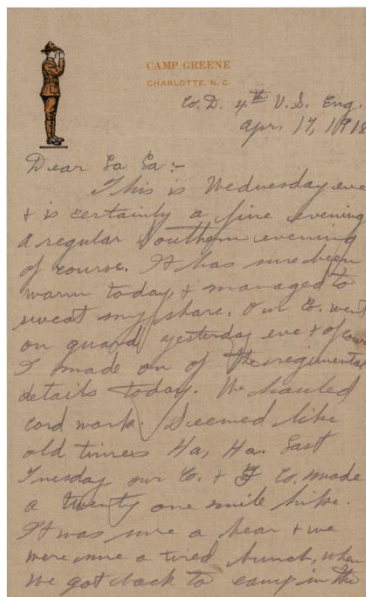 CAMP GREENE
CHARLOTTE, N. C.
Co. D. 4th U.S. Eng.
Apr. 17, 1918
Dear La La:-
This is Wednesday eve
+ is certainly a fine evening
a regular Southern evening
of course. It has sure been
warm today + managed to
sweat my share. Our Co. went
on guard yesterday eve + of cour
I made on of the regimental
details today. We hauled
cord wood. Seemed like
old times Ha, Ha. Last
Tuesday our Co. + F Co. made
a twenty one mile hike.
It was sure a bear + we
were sure a tired bunch, when
we got back to camp in the